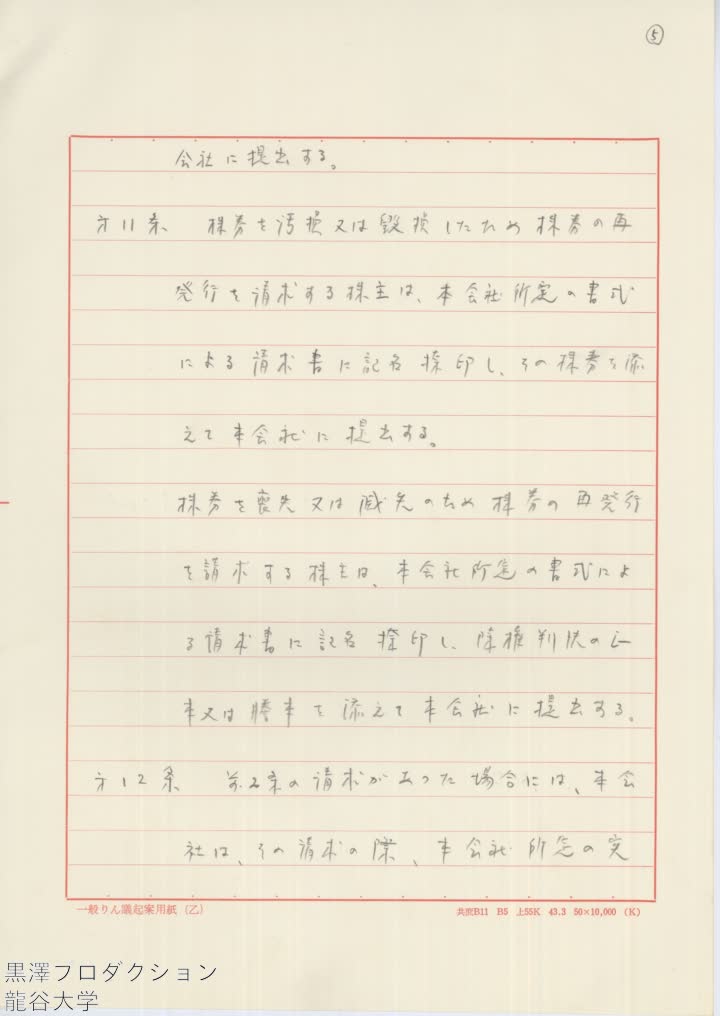 ⑤
会社に提出する。
才11条　株券を汚損又は毀損したため株券の再
発行を請求する株主は、本会社所定の書式
による請求書に記名捺印し、その株券を添
えて本会社に提出する。
株券を喪失又は滅失のため株券の再発行
を請求する株主は、本会社所定の書式によ
る請求書に記名捺印し、除権判決の正
本又は謄本を添えて本会社に提出する。
才12条　前2条の請求があった場合には、本会
社は、その請求の際、本会社所定の実
一般りん議起案用紙（乙）
共庶B11　B5　上55K　43.3　50×10,000　（K）
黒澤プロダクション
龍谷大学